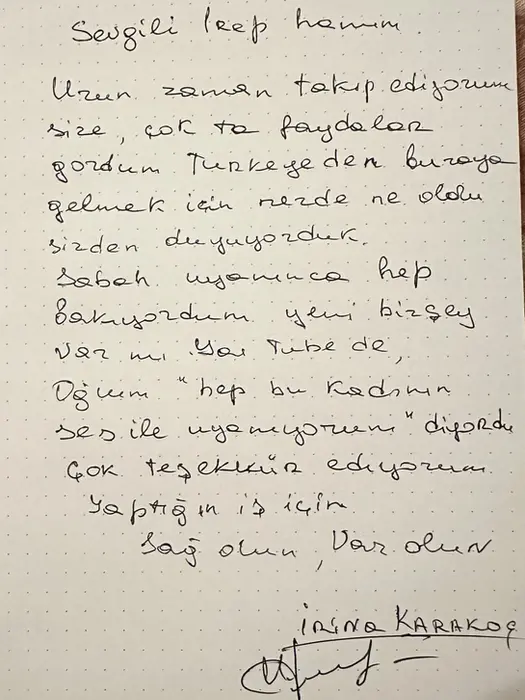 Sevgili İrep hanım
Uzun zaman takip ediyorum
size, çok ta faydalar
gördum Turkeyeden buraya
gelmek için nerde ne oldu
sizden duyuyorduk.
Sabah uyanınca hep
bakıyordum yeni birşey
var mı You Tube de,
Oğlum "hep bu kadının
ses ile uyanıyorum" diyordu
Çok teşekkür ediyorum
Yaptığın iş için
Sağ olun, Var olun
İRİNA KARAKOÇ